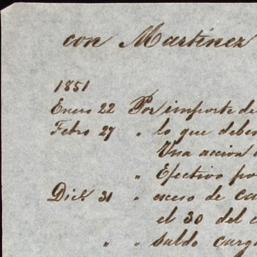 con Martinez
1851
Enero 22 Por importe de
Febro 27 " lo que deben
Una accion
" Efectivo po
Dicb. 31 " exceso de ca
el 30 del c
" " saldo carg